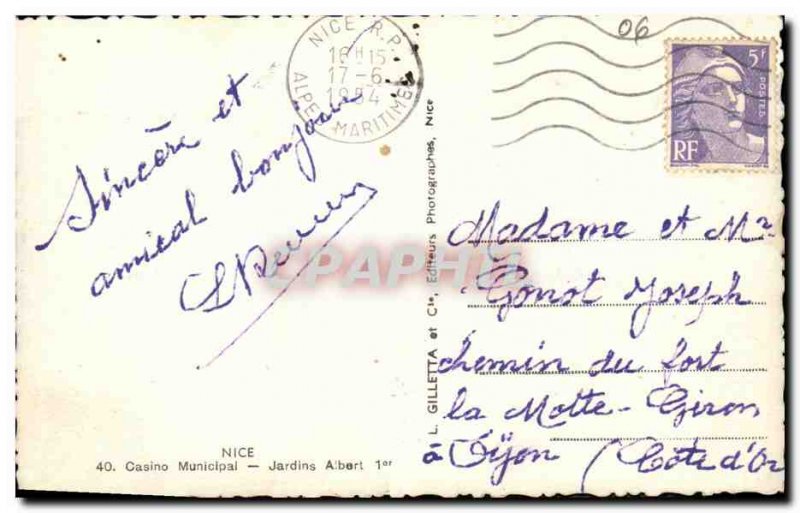 06
NICE R.P.
16H15
17-6
1954
ALPES MARITIMES
5f
POSTES
RF
Sincère et
amical bonjour
Madame et Mr
Gonot Joseph
chemin du fort
la Motte-Giron
à Dijon (Côte d'Or
L. GILLETTA et Cie, Editeurs Photographes, Nice
CPAPHIL
NICE
40. Casino Municipal — Jardins Albert 1er